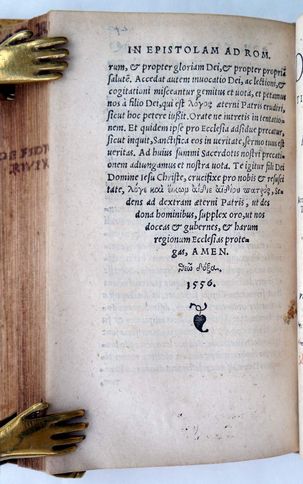 IN EPISTOLAM AD ROM.
rum, & propter gloriam Dei, & propter propriã
salutẽ. Accedat autem inuocatio Dei, ac lectioni, &
cogitationi misceantur gemitus et uota, et petamus
nos à filio Dei, qui est λόγος æterni Patris erudiri,
sicut hoc petere iußit. Orate ne intretis in tentatio-
nem. Et quidem ipse pro Ecclesia adsidue precatur,
sicut inquit, Sanctifica eos in ueritate, sermo tuus est
ueritas. Ad huius summi Sacerdotis nostri precati-
onem adiungamus et nostra uota. Te igitur fili Dei
Domine Iesu Christe, crucifixe pro nobis & resusci
tate, λόγε καὶ ἀϊδίου πατρὸς, se-
dens ad dextram æterni Patris, ut des
dona hominibus, supplex oro, ut nos
doceas & gubernes, & harum
regionum Ecclesias prote-
gas, AMEN.
δόξα.
1556.